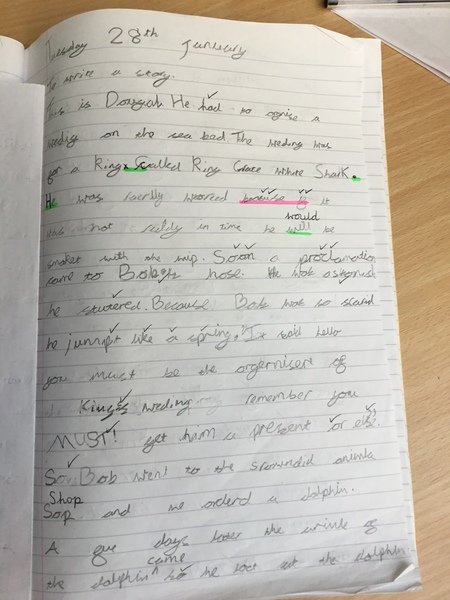 Tuesday 28th January
To write a story.
This is Dougal. He had to orgnise a
weding on the sea bed The weding was
for a King, Called King Grate White Shark.
He was rserlly woreed becuase if it
was not reddy in time he would will be
smaket with the wip. Soon a proclamation
came to Bob's hose. He was astonished
he stutered. Because Bob was so scared
he jumpt like a spring." It said hello
you must be the orgernisert of
the King's weding remember you
MUST! get him a present or else.
So Bob went to the animla
Shop
Sop and he orderd a dolphin.
A few days later the of
came
the dolphin so he at the dolphin.